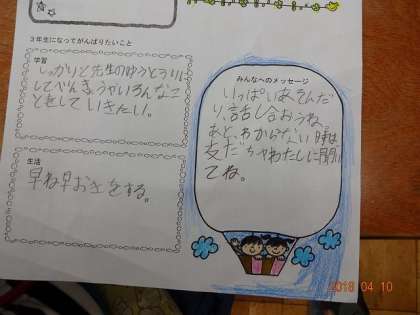 育。
3年生になってがんばりたいこと
学習
しっかりと先生のゆうとうりに
してべんきょうやいろんなこ
とをしていきたい。
生活
早ね早おきをする。
みんなへのメッセージ
いっぱいあそんだ
り、話し合おうね。
あと、わからない時は
友だちやわたしに聞い
てね。
2018 04 10